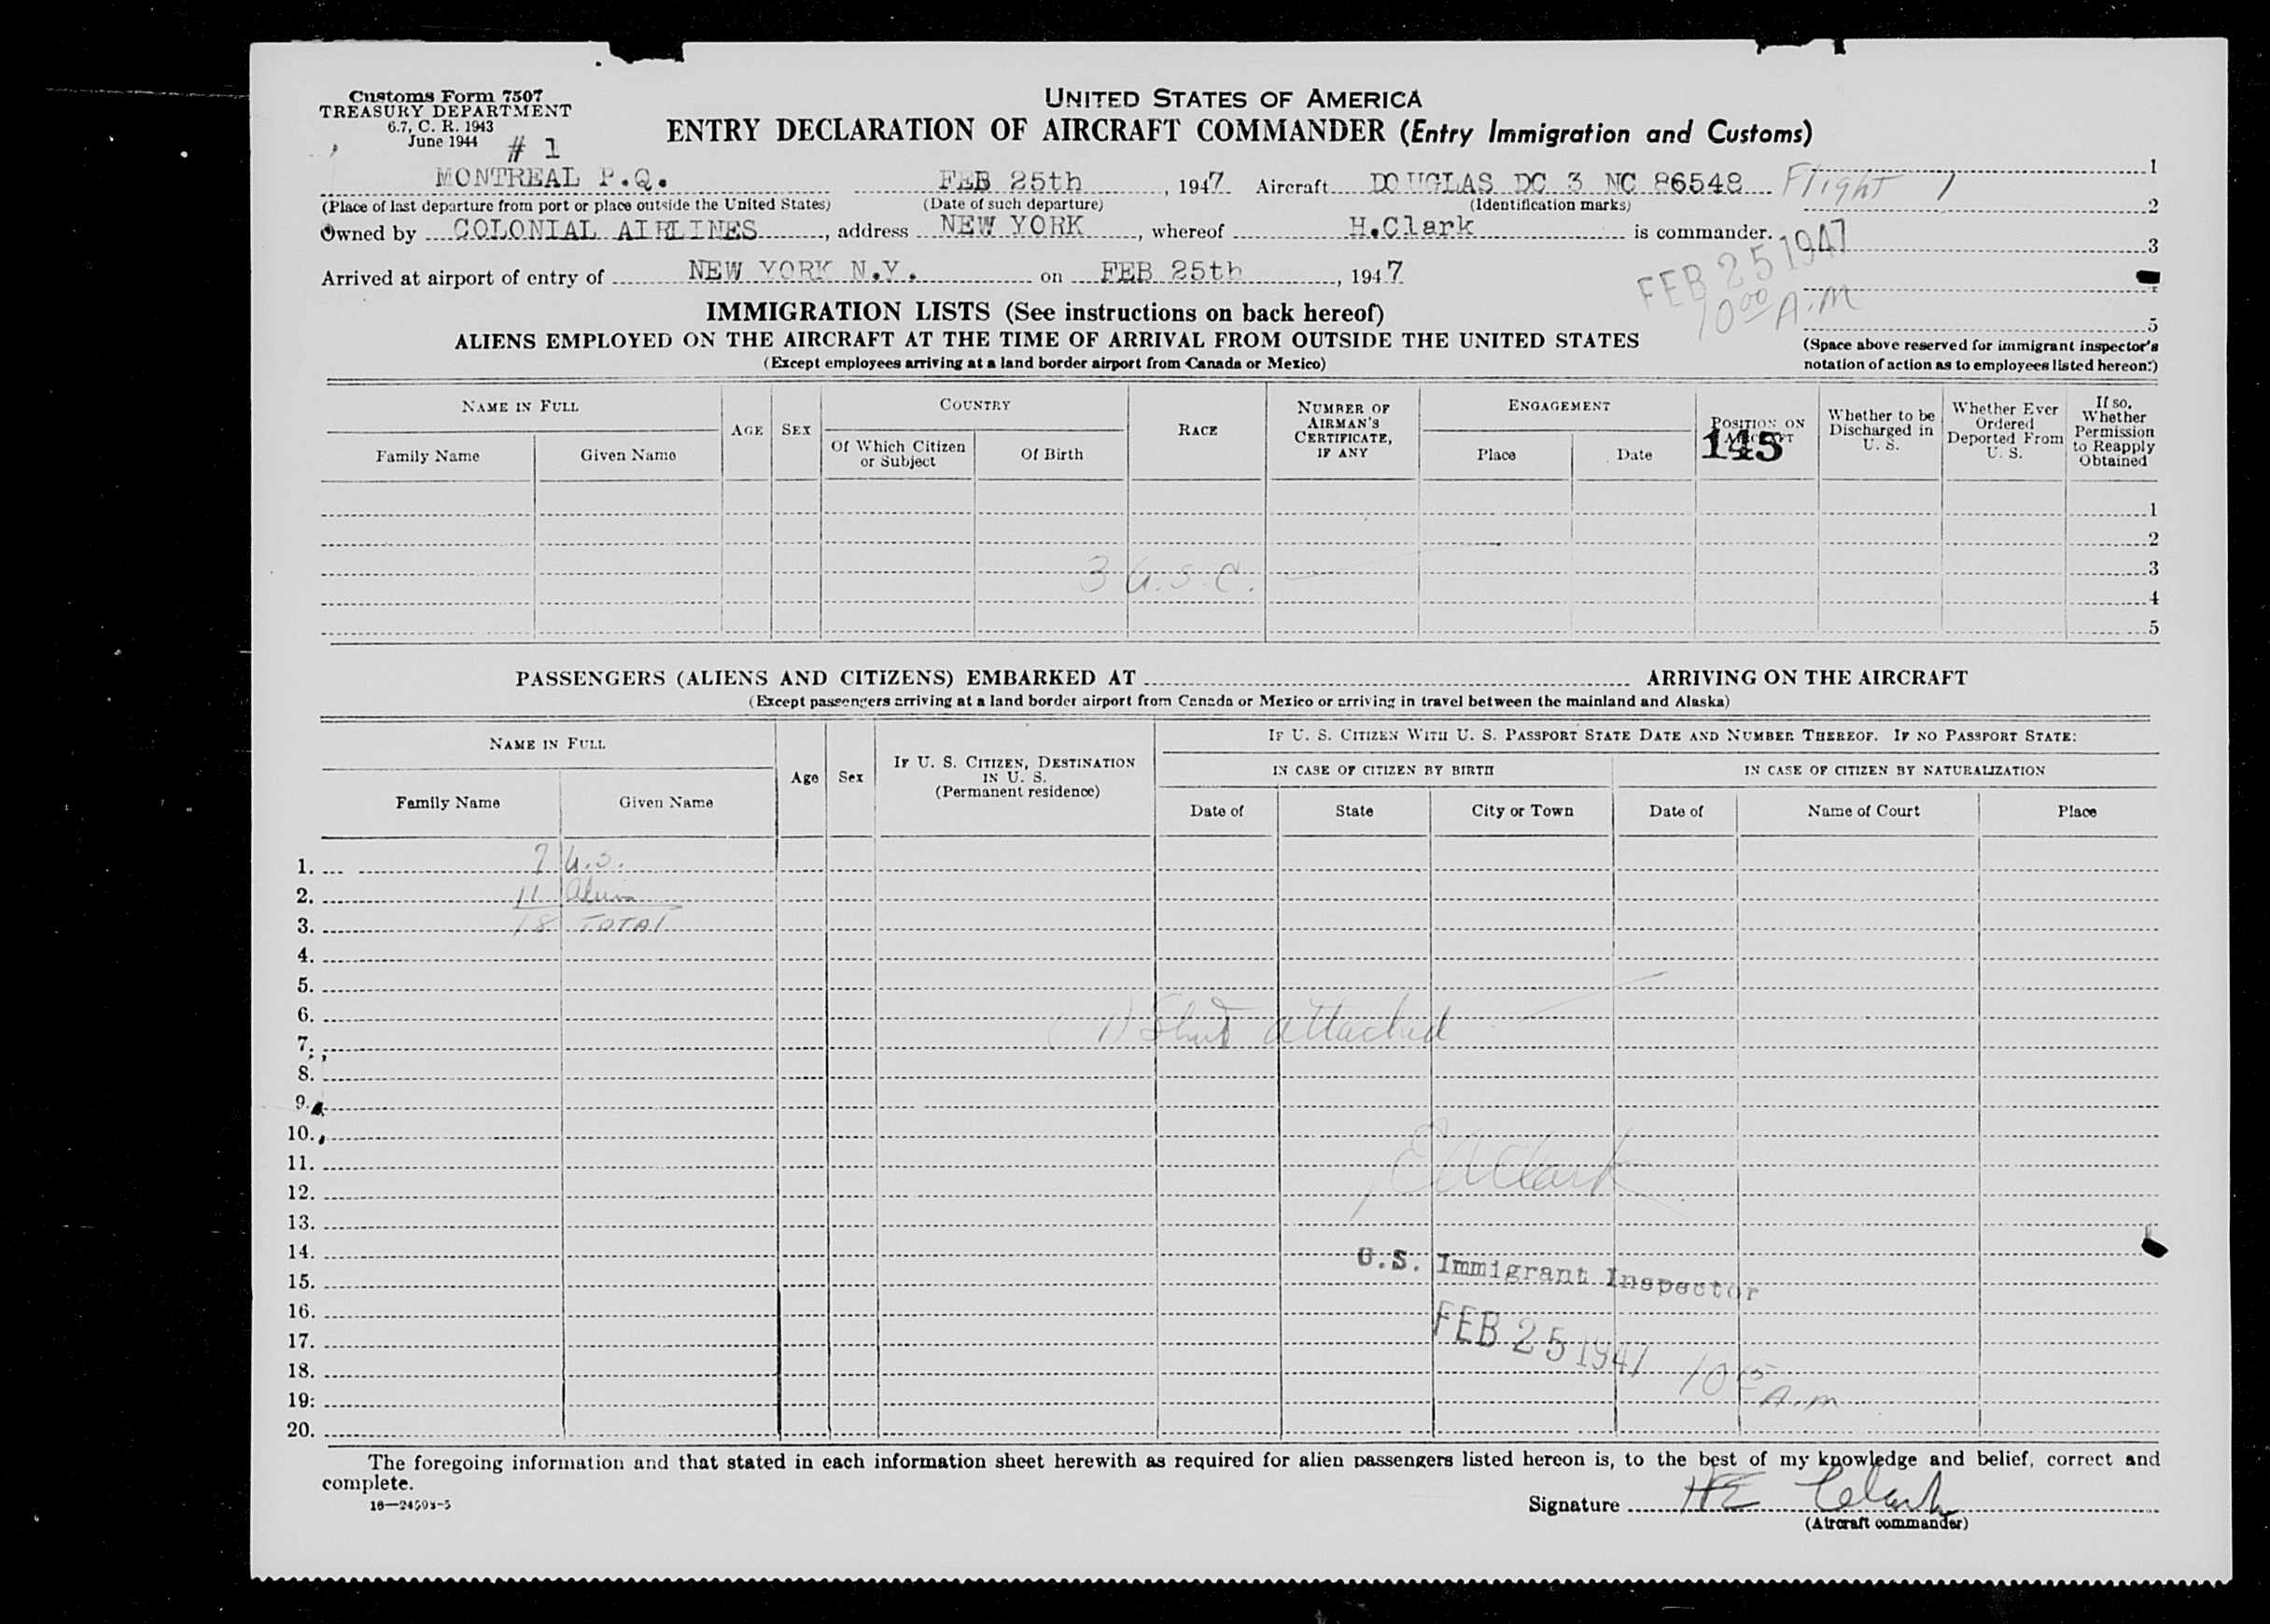 Customs Form 7507
TREASURY DEPARTMENT
6.7, C. R. 1943
June 1944
# 1
UNITED STATES OF AMERICA
ENTRY DECLARATION OF AIRCRAFT COMMANDER (Entry Immigration and Customs)
MONTREAL P.Q. FEB 25th, 1947 Aircraft DOUGLAS DC 3 NC 86548 Flight 1
(Place of last departure from port or place outside the United States) (Date of such departure) (Identification marks)
Owned by COLONIAL AIRLINES, address NEW YORK, whereof H.Clark is commander.
Arrived at airport of entry of NEW YORK N.Y. on FEB 25th, 1947
1
2
3
5
FEB 25 1947
10 00 A.M
(Space above reserved for immigrant inspector's
notation of action as to employees listed hereon.)
IMMIGRATION LISTS (See instructions on back hereof)
ALIENS EMPLOYED ON THE AIRCRAFT AT THE TIME OF ARRIVAL FROM OUTSIDE THE UNITED STATES
(Except employees arriving at a land border airport from Canada or Mexico)
NAME IN FULL
Family Name Given Name
AGE SEX
COUNTRY
Of Which Citizen or Subject Of Birth
RACE
NUMBER OF AIRMAN'S CERTIFICATE, IF ANY
ENGAGEMENT
Place Date
POSITION ON AIRCRAFT
145
Whether to be Discharged in U. S.
Whether Ever Ordered Deported From U. S.
If so, Whether Permission to Reapply Obtained
1
2
3 U.S.C. 3
4
5
PASSENGERS (ALIENS AND CITIZENS) EMBARKED AT ARRIVING ON THE AIRCRAFT
(Except passengers arriving at a land border airport from Canada or Mexico or arriving in travel between the mainland and Alaska)
NAME IN FULL
Family Name Given Name
Age Sex
IF U. S. CITIZEN, DESTINATION IN U. S.
(Permanent residence)
IF U. S. CITIZEN WITH U. S. PASSPORT STATE DATE AND NUMBER THEREOF. IF NO PASSPORT STATE:
IN CASE OF CITIZEN BY BIRTH IN CASE OF CITIZEN BY NATURALIZATION
Date of State City or Town Date of Name of Court Place
1. 7 U.S.
2. 11 Alien
3. 18 TOTAL
4.
5.
6.
(1) Sheet attached
7.
8.
9.
10.
11.
E A Clark
12.
13.
14.
U.S. Immigrant Inspector
15.
16.
FEB 25 1947
17.
18.
10 15 A.m
19.
20.
The foregoing information and that stated in each information sheet herewith as required for alien passengers listed hereon is, to the best of my knowledge and belief, correct and
complete.
16—24508-5
Signature HE Clark
(Aircraft commander)